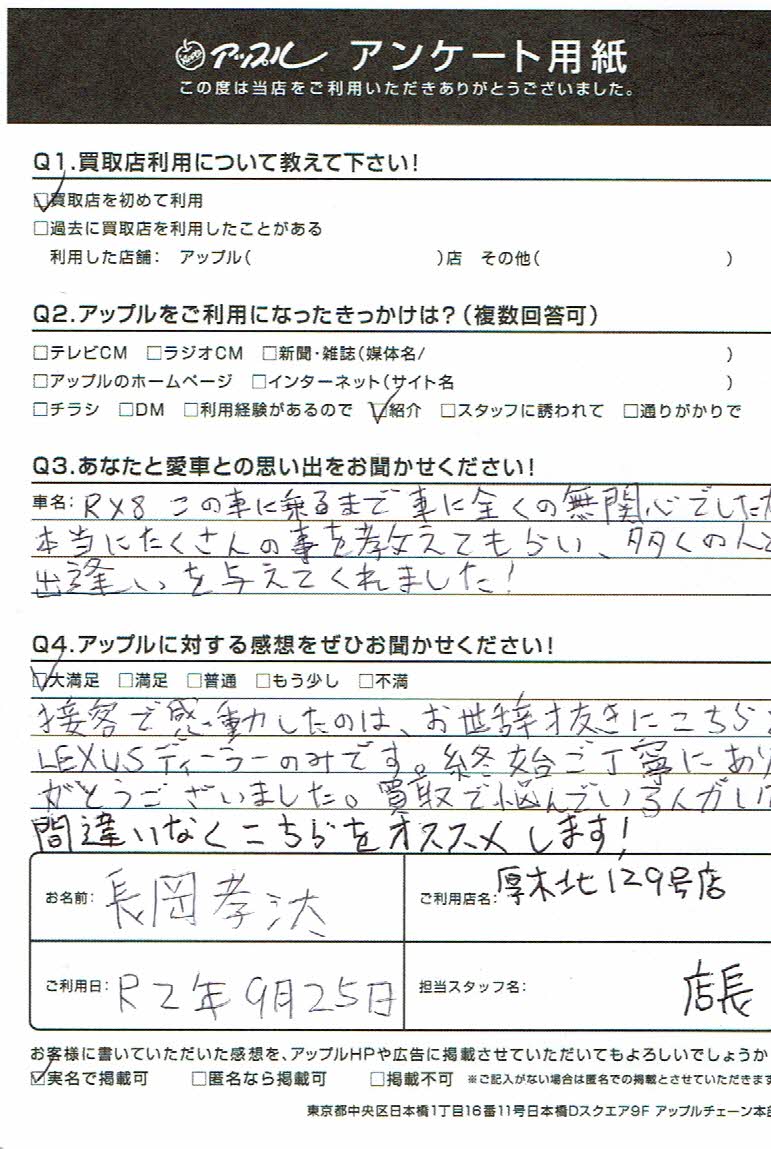 アップル アンケート用紙
この度は当店をご利用いただきありがとうございました。
Q1.買取店利用について教えて下さい!
☑買取店を初めて利用
□過去に買取店を利用したことがある
利用した店舗: アップル( )店 その他( )
Q2.アップルをご利用になったきっかけは?(複数回答可)
□テレビCM □ラジオCM □新聞・雑誌(媒体名/ )
□アップルのホームページ □インターネット(サイト名 )
□チラシ □DM □利用経験があるので ☑紹介 □スタッフに誘われて □通りがかりで
Q3.あなたと愛車との思い出をお聞かせください!
車名: RX8 この車に乗るまで車に全くの無関心でした
本当にたくさんの事を教えてもらい、多くの人と
出逢いを与えてくれました!
Q4.アップルに対する感想をぜひお聞かせください!
☑大満足 □満足 □普通 □もう少し □不満
接客で感動したのは、お世辞抜きにこちら
LEXUSディーラーのみです。終始ご丁寧にあり
がとうございました。買取で悩んでいる人がい
間違いなくこちらをオススメします!
お名前: 長岡孝汰
ご利用店名: 厚木北129号店
ご利用日: R2年9月25日
担当スタッフ名: 店長
お客様に書いていただいた感想を、アップルHPや広告に掲載させていただいてもよろしいでしょうか
☑実名で掲載可 □匿名なら掲載可 □掲載不可 ※ご記入がない場合は匿名での掲載とさせていただきます
東京都中央区日本橋1丁目16番11号日本橋Dスクエア9F アップルチェーン本部